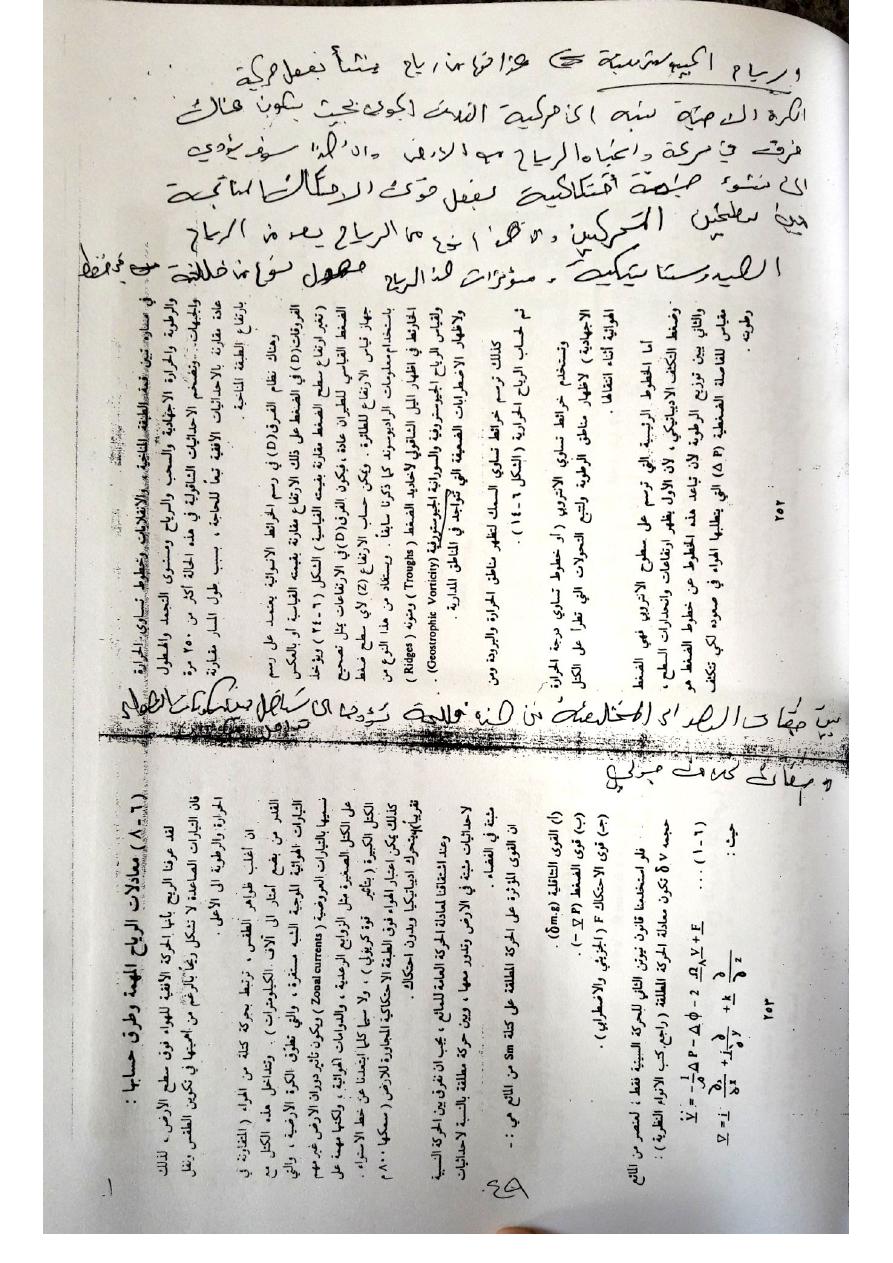 والرياح الجيوستروفية
الكرة الارضية نسبة الى حركية الغلاف الجوي بحيث يكون هناك
فرق في سرعة واتجاه الرياح الارض وان هذا سوف يؤدي
الى نشوء احتكاكية بفعل قوى الاحتكاك الناتجة
بين سطحين المتحركين هذا من الرياح يعد من الرياح
الهيدروستاتيكية هذا الرياح
بين طبقات الهواء المختلفة من
في مساره تبين قمة الطبقة المناخية، والانقلابات وخطوط تساوي الحرارة
والرطوبة والحرارة الاجهادية والسحب والرياح ومستوى التجمد والهطول
والجبهات. وتضخم الاحداثيات الشاقولية في هذه الحالة أكثر من ٢٥٠ مرة
عادة مقارنة بالاحداثيات الأفقية تبعاً للحاجة، بسبب طول المسار مقارنة
بارتفاع الطبقة المناخية.
وهناك نظام الفرق (D) في رسم الخرائط الانوائية يعتمد على رسم
الفروقات (D) في الضغط على ذلك الارتفاع مقارنة بقيمته القياسية أو بالعكس
(تغير ارتفاع سطح الضغط مقارنة بقيمته القياسية) الشكل (٦-٢٤) ويؤخذ
الضغط القياسي للطيران عادة، فيكون الفرق (D) في الارتفاعات يمثل تصحيح
جهاز قياس الارتفاع للطائرة. ويمكن حساب الارتفاع (Z) لأي سطح ضغط
باستخدام معلومات الراديوسوند كما ذكرنا سابقاً. ويستفاد من هذا النوع من
الخارطة في اظهار الميل الشاقولي لأخاديد الضغط (Troughs) ومتونه (Ridges)
ولقياس الرياح الجيوستروفية والدورانية الجيوستروفية (Geostrophic Vorticity).
ولاظهار الاضطرابات الضعيفة التي تتواجد في المناطق المدارية.
كذلك ترسم خرائط تساوي السمك لتظهر مناطق الحرارة والبرودة ومن
ثم لحساب الرياح الحرارية (الشكل ٦-١٤).
وتستخدم خرائط تساوي الانتروبي (أو خطوط تساوي درجة الحرارة
الاجهادية) لاظهار مناطق الرطوبة ولتتبع التحولات التي تطرأ على الكتل
الهوائية أثناء انتقالها.
أما الخطوط الرئيسية التي ترسم على سطوح الانتروبي فهي الضغط
وضغط التكثف الاديباتيكي، لأن الأول يظهر ارتفاعات وانحدارات السطح،
والثاني يبين توزيع الرطوبة لأن تباعد هذه الخطوط عن خطوط الضغط هو
مقياس للفاصلة الضغطية (Δ P) التي يتطلبها الهواء في صعوده لكي تتكثف
رطوبته.
٢٥٢
(٦-٨) معادلات الرياح المهمة وطرق حسابها:
لقد عرفنا الريح بأنها الحركة الأفقية للهواء فوق سطح الأرض، لذلك
فان التيارات الصاعدة لا تشكل ريحاً بالرغم من أهميتها في تكوين الطقس ونقل
الحرارة والرطوبة الى الأعلى.
ان أغلب ظواهر الطقس، ترتبط بحركة كتلة من الهواء (المتفاوتة في
القدر من بضع أمتار الى آلاف الكيلومترات). وتتداخل هذه الكتل مع
التيارات الهوائية الموجية الشبه مستقرة، والتي تطوق الكرة الأرضية، والتي
نسميها بالتيارات العروضية (Zonal currents) ويكون تأثير دوران الارض غير مهم
على الكتل الصغيرة مثل الزوابع الرعدية، والدوامات الهوائية، ولكنها مهمة على
الكتل الكبيرة (بتأثير قوة كريولي)، ولا سيما كلما ابتعدنا عن خط الاستواء.
كذلك يمكن اعتبار الهواء فوق الطبقة الاحتكاكية المجاورة للارض (سمكها ٨٠٠ م
تقريباً) يتحرك اديباتيكيا وبدون احتكاك.
وعند اشتقاقنا لمعادلة الحركة العامة للمائع، يجب ان نفرق بين الحركة النسبية
لاحداثيات مثبتة في الارض وتدور معها، وبين حركة مطلقة بالنسبة لاحداثيات
مثبتة في الفضاء.
ان القوى المؤثرة على الحركة المطلقة على كتلة Sm من المائع هي: -
(أ) القوى التثاقلية (δm.g).
(ب) قوى الضغط (- ∇ P).
(جـ) قوى الاحتكاك F (الجزيئي والاضطرابي).
فلو استخدمنا قانون نيوتن الثاني للحركة النسبية فقط: لعنصر من المائع
حجمه δ V تكون معادلة الحركة المطلقة (راجع كتب الانواء النظرية):
V̇ = - 1/ρ Δ P - Δ ϕ - 2 Ω ∧ V + F ... (٦-١)
حيث:
∇ = i ∂/∂x + j ∂/∂y + k ∂/∂z
٢٥٣